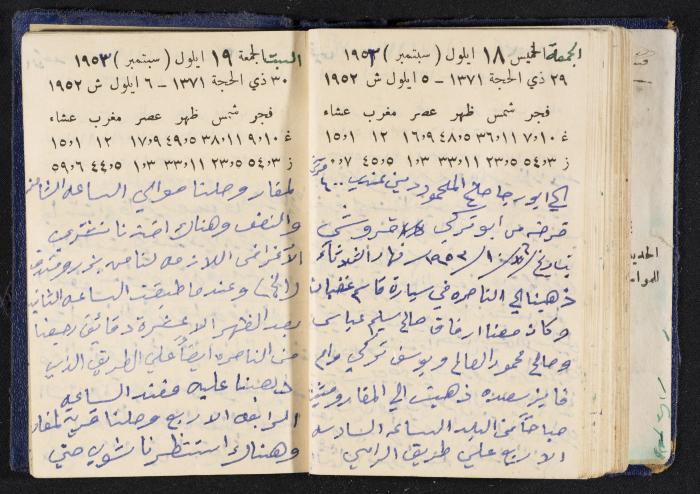 الجمعة الخميس ١٨ ايلول ( سبتمبر ) ١٩٥٢
٢٩ ذي الحجة ١٣٧١ – ٥ ايلول ش ١٩٥٢
فجر شمس ظهر عصر مغرب عشاء
غ ٧و١٠ ٣٦و١١ ٤٨و٥ ١٦و٩ ١٢ ١٥و١
ز ٥٤و٣ ٢٣و٥ ٣٣و١١ ١و٣ ٤٥و٥ ٠و٧
الي ابو رجا صالح المحمود دين عندي
قرضه من ابو تركي قروش
بتاريخ ١٩٥٣ نهار الثلاثاء
ذهبنا الي الناصره في سيارة قاسم
وكان معنا ارفاق صالح سليم عباسي
وصالح محمود العالم ويوسف تركي وام
فايز سعده ذهبت الي المقار
صباحاً من البلد الساعه السادسه
الا ربع علي طريق الرامي
السبت الجمعة ١٩ ايلول ( سبتمبر ) ١٩٥٣
٣٠ ذي الحجة ١٣٧١ – ٦ ايلول ش ١٩٥٢
فجر شمس ظهر عصر مغرب عشاء
غ ٩و١٠ ٣٨و١١ ٤٩و٥ ١٧و٩ ١٢ ١٥و١
ز ٥٤و٣ ٢٣و٥ ٣٣و١١ ١و٣ ٤٤و٥ ٥٩و٦
لمقار وصلنا حوالي الساعه الثامنه
والنصف وهناك اخذنا نشتري
الاغراض اللازمه لنا من
والخ وعندما طبقت الساعه الثانيه
بعد الظهر الا عشرة دقائق رجعنا
من الناصره ايضاً علي الطريق الذي
ذهبنا عليه فعند الساعه
الرابعه الا ربع وصلنا قرية لمغار
وهناك استنظرنا شوي حتي